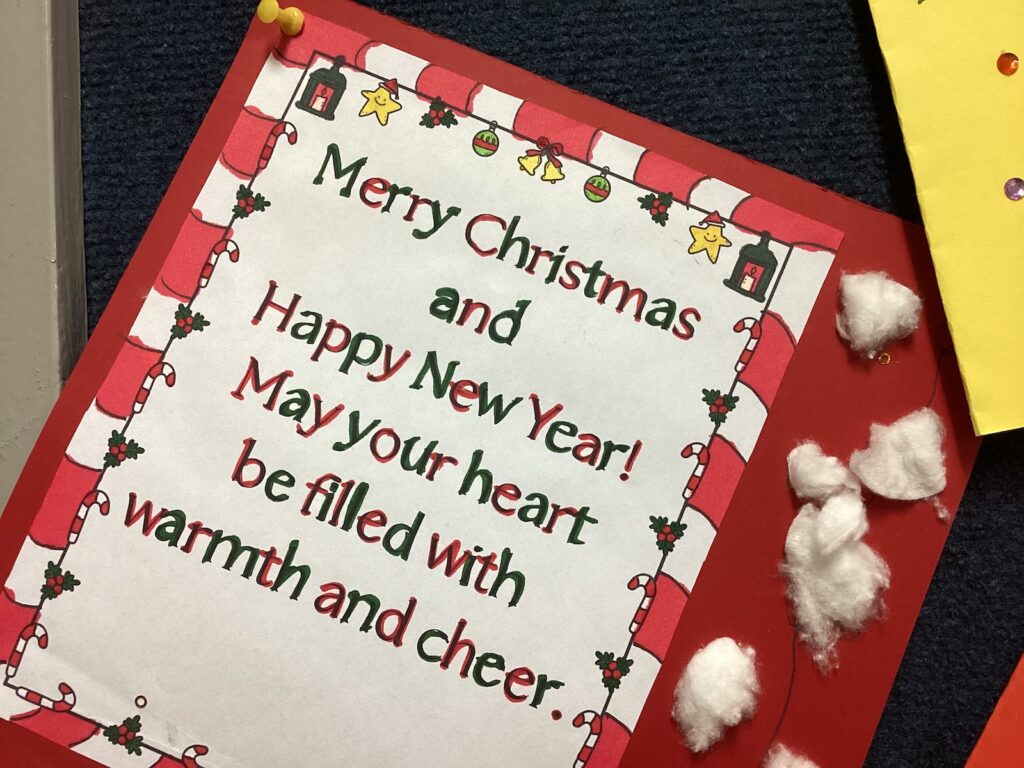 Merry Christmas
and
Happy New Year!
May your heart
be filled with
warmth and cheer.